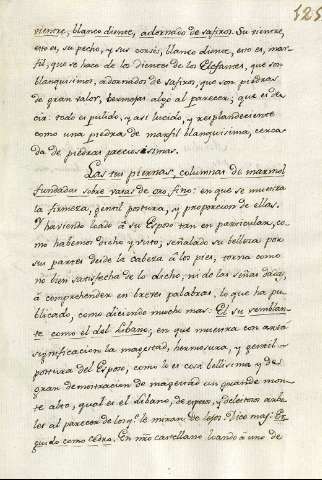 125
vientre, blanco diente, adornado de safiros. Su vientre,
esto es, su pecho, y sus carnes, blanco diente, esto es, mar-
fil, que se hace de los dientes de los Elefantes, que son
blanquisimos, adornados de safiros, que son piedras
de gran valor, bermejas algo al parecer; que es de-
cir: todo es pulido, y asi lucido, y resplandeciente
como una piedra de marfil blanquisima, cerca-
da de piedras preciosisimas.
Las sus piernas, columnas de marmol
fundadas sobre vasas de oro fino: en que se muestra
la firmeza, gentil postura, y proporcion de ellas.
Y haviendo loado á su Esposo tan en particular, co-
mo habemos dicho y visto; señalado su belleza por
sus partes desde la cabeza á los pies, torna como
no bien satisfecha de lo dicho, ni de las señas dadas,
á comprehender en breves palabras, lo que ha pu-
blicado, como diciendo mucho mas: El su semblan-
te como el del Libano; en que muestra con harta
significacion la magestad, hermosura, y gentil
postura del Esposo, como lo es cosa bellisima y de
gran demostracion de magestad un grande mon-
te alto, qual es el Libano, de espesos, y deleitosos arbo-
les al parecer de los q.e le miran de lejos. Dice mas: Er-
guido como cedro. En nro castellano loando á uno de